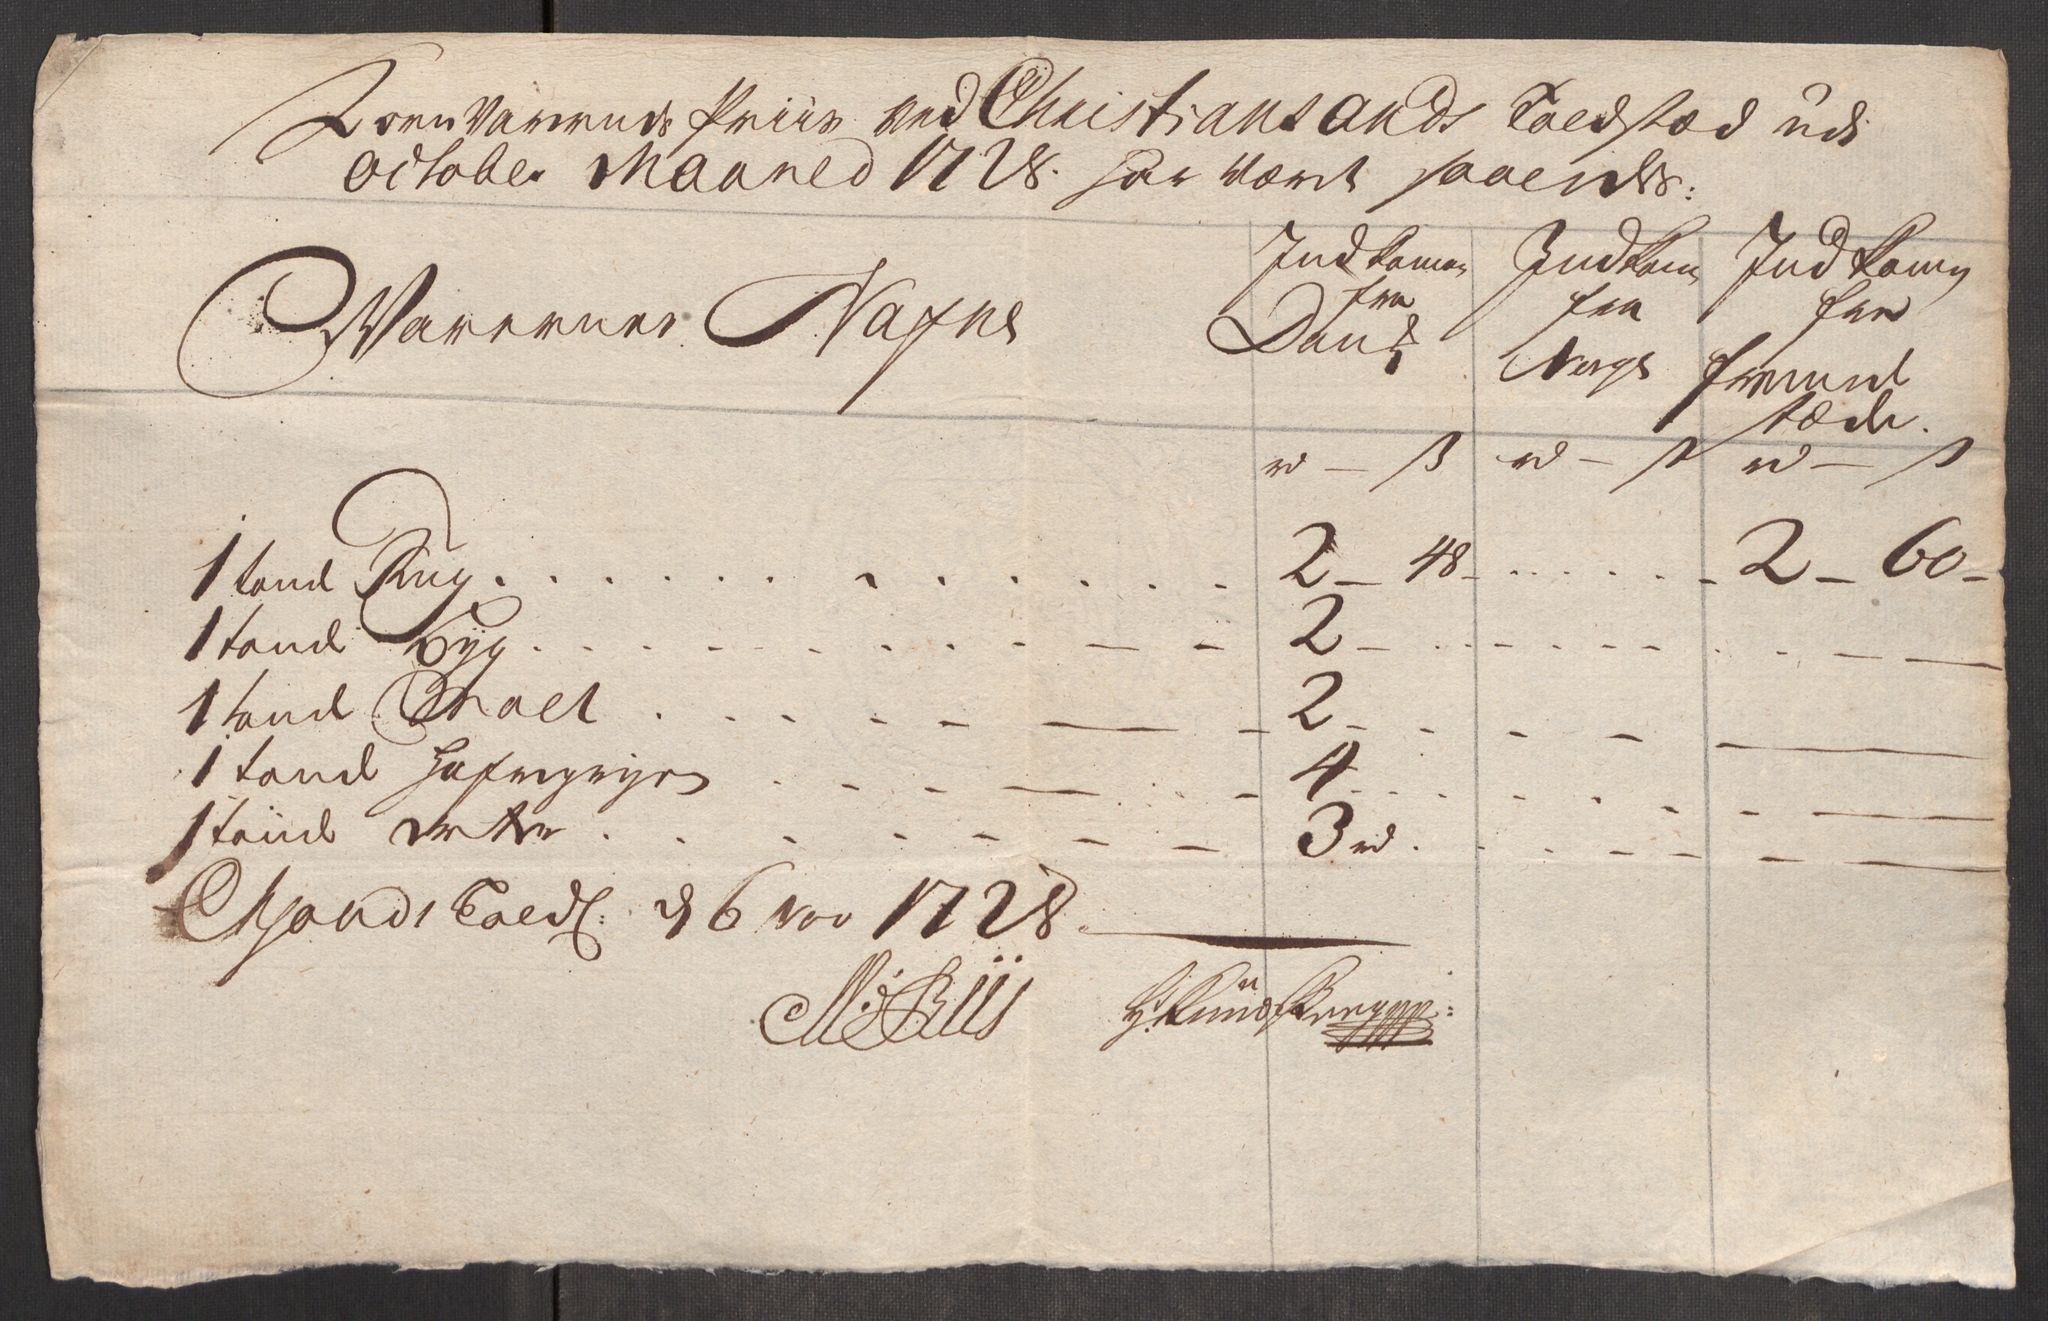 Korn Varernes Priis ved Christiansands Toldstæd udi
October Maaned 1728. har været saaledes:
Varernes Nafne
Indkomen fra Dank
Indkom fra Norge
Indkomen fra fremmed stæder.
rd — ß rd — ß rd — ß
1 tønde Rug . . . . 2 — 48 — . . . . 2 — 60 —
1 tønde Byg . . . . 2 —
1 tønde Malt . . . . 2 —
1 tønde hafregryn . . . . 4
1 tønde erter . . . . 3 rd .
Chsands Told: d 6 Nov 1728